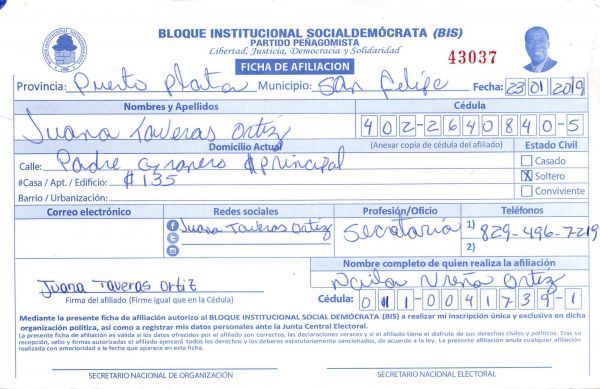 BLOQUE INSTITUCIONAL SOCIALDEMÓCRATA (BIS)
PARTIDO PEÑAGOMISTA
Libertad, Justicia, Democracia y Solidaridad
FICHA DE AFILIACION
43037
Provincia: Puerto plata Municipio: San Felipe Fecha: 23 01 2019
Nombres y Apellidos Cédula
Juana Taveras Ortiz 402-2640840-5
Domicilio Actual (Anexar copia de cédula del afiliado) Estado Civil
Calle: Padre granero #principal Casado
#Casa / Apt. / Edificio: #135 X Soltero
Barrio / Urbanización: Conviviente
Correo electrónico Redes sociales Profesión/Oficio Teléfonos
Juana Taveras Ortiz Secretaria 1) 829-496-7219
2)
Nombre completo de quien realiza la afiliación
Juana Taveras Ortiz Ureña Ortiz
Firma del afiliado (Firme igual que en la Cédula) Cédula: 011-0041739-1
Mediante la presente ficha de afiliación autorizo al BLOQUE INSTITUCIONAL SOCIAL DEMÓCRATA (BIS) a realizar mi inscripción única y exclusiva en dicha
organización política, así como a registrar mis datos personales ante la Junta Central Electoral.
La presente ficha de afiliación es válida si los datos ofrecidos por el afiliado son correctos, las declaraciones veraces y si el afiliado tiene el disfrute de sus derechos civiles y políticos. Tras su
recepción, sello y firmas autorizadas el afiliado ejercerá todos los derechos y los deberes estatutariamente sancionados, de acuerdo a la ley. La presente afiliación anula cualquier afiliación
realizada con anterioridad a la fecha que aparece en esta ficha.
SECRETARIO NACIONAL DE ORGANIZACIÓN SECRETARIO NACIONAL ELECTORAL